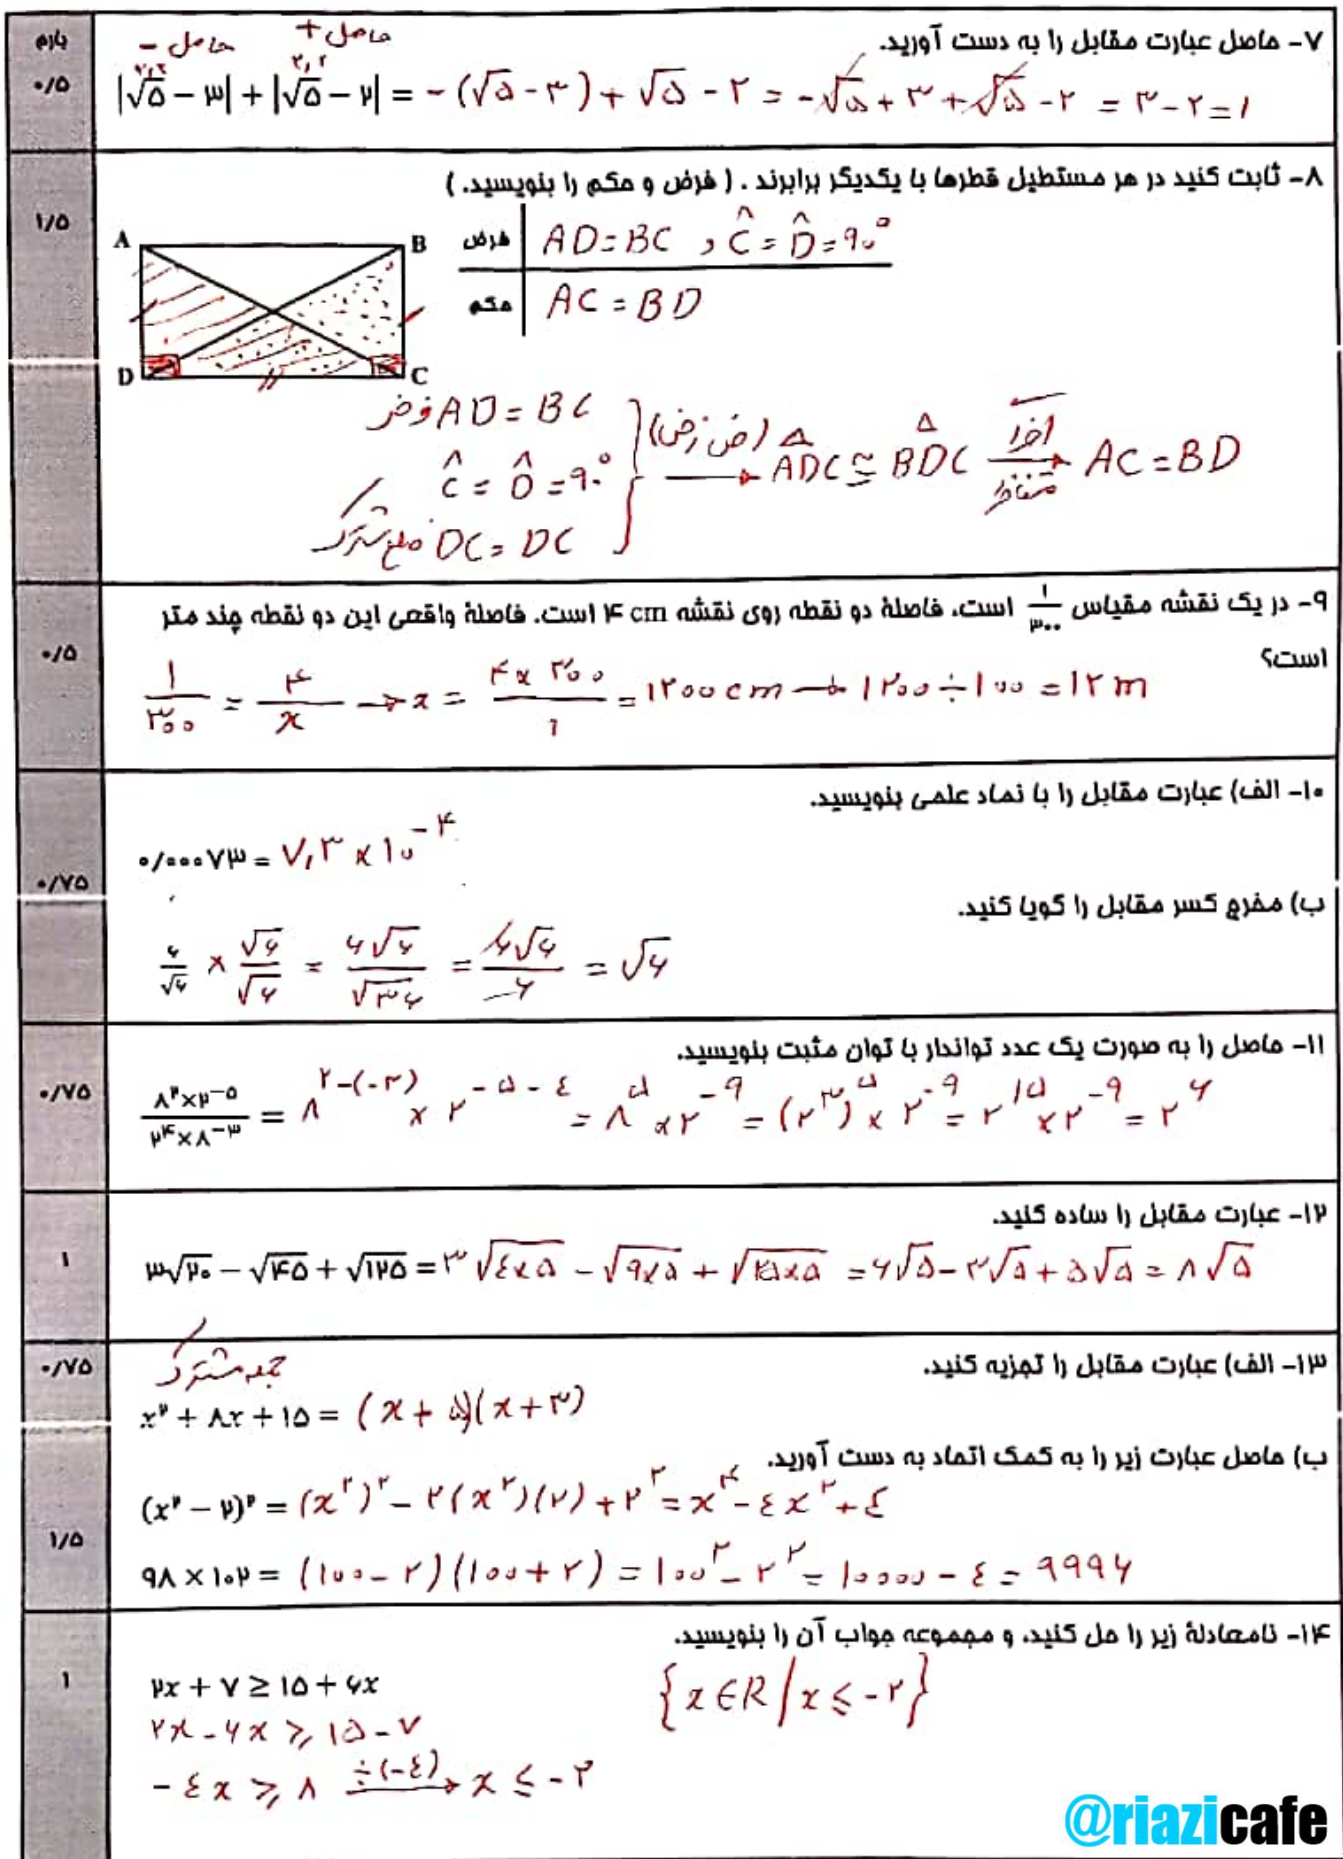 بارم
۷- حاصل عبارت مقابل را به دست آورید.
۰/۵
حاصل - حاصل +
۲,۲ ۲,۲
|√۵ − ۳| + |√۵ − ۲| = -(√۵ - ۳) + √۵ - ۲ = -√۵ + ۳ + √۵ - ۲ = ۳ - ۲ = ۱
۸- ثابت کنید در هر مستطیل قطرها با یکدیگر برابرند . ( فرض و حکم را بنویسید. )
۱/۵
A B
D C
فرض | AD = BC , Ĉ = D̂ = ۹۰°
حکم | AC = BD
فرض AD = BC
Ĉ = D̂ = ۹۰°
ضلع مشترک DC = DC
(ض ز ض) → ADC ≅ BDC اجزا متناظر → AC = BD
۹- در یک نقشه مقیاس ۱/۳۰۰ است، فاصلهٔ دو نقطه روی نقشه ۴ cm است. فاصلهٔ واقعی این دو نقطه چند متر
است؟
۰/۵
۱/۳۰۰ = ۴/x → x = (۴ × ۳۰۰)/۱ = ۱۲۰۰ cm → ۱۲۰۰ ÷ ۱۰۰ = ۱۲ m
۱۰- الف) عبارت مقابل را با نماد علمی بنویسید.
۰/۰۰۰۷۳ = ۷,۳ × ۱۰^-۴
۰/۷۵
ب) مخرج کسر مقابل را گویا کنید.
۶/√۶ × √۶/√۶ = ۶√۶/√۳۶ = ۶√۶/۶ = √۶
۱۱- حاصل را به صورت یک عدد تواندار با توان مثبت بنویسید.
۰/۷۵
(۸^۲ × ۲^-۵)/(۲^۴ × ۸^-۳) = ۸^(۲-(-۳)) × ۲^(-۵-۴) = ۸^۵ × ۲^-۹ = (۲^۳)^۵ × ۲^-۹ = ۲^۱۵ × ۲^-۹ = ۲^۶
۱۲- عبارت مقابل را ساده کنید.
۱
۳√۲۰ − √۴۵ + √۱۲۵ = ۳√(۴×۵) - √(۹×۵) + √(۲۵×۵) = ۶√۵ - ۳√۵ + ۵√۵ = ۸√۵
۱۳- الف) عبارت مقابل را تجزیه کنید.
۰/۷۵
جمله مشترک
x^۲ + ۸x + ۱۵ = (x + ۵)(x + ۳)
ب) حاصل عبارت زیر را به کمک اتحاد به دست آورید.
(x^۲ − ۲)^۲ = (x^۲)^۲ - ۲(x^۲)(۲) + ۲^۲ = x^۴ - ۴x^۲ + ۴
۱/۵
۹۸ × ۱۰۲ = (۱۰۰ - ۲)(۱۰۰ + ۲) = ۱۰۰^۲ - ۲^۲ = ۱۰۰۰۰ - ۴ = ۹۹۹۶
۱۴- نامعادلهٔ زیر را حل کنید، و مجموعه جواب آن را بنویسید.
۱
۲x + ۷ ≥ ۱۵ + ۶x {x ∈ R / x ≤ -۲}
۲x - ۶x ≥ ۱۵ - ۷
-۴x ≥ ۸ ÷(-۴) → x ≤ -۲
@riazicafe